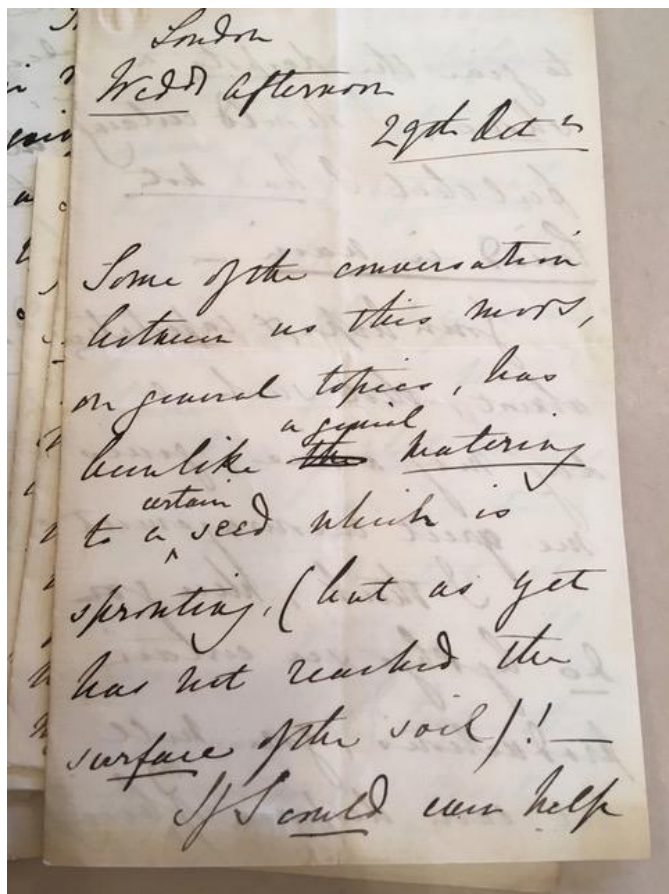 London
Wedds Afternoon
29th Octr
Some of the conversation
between us this morg,
on general topics, has
been like the a genial watering
to a certain seed which is
sprouting, (but as yet
has not reached the
surface of the soil)!—
If I could even help